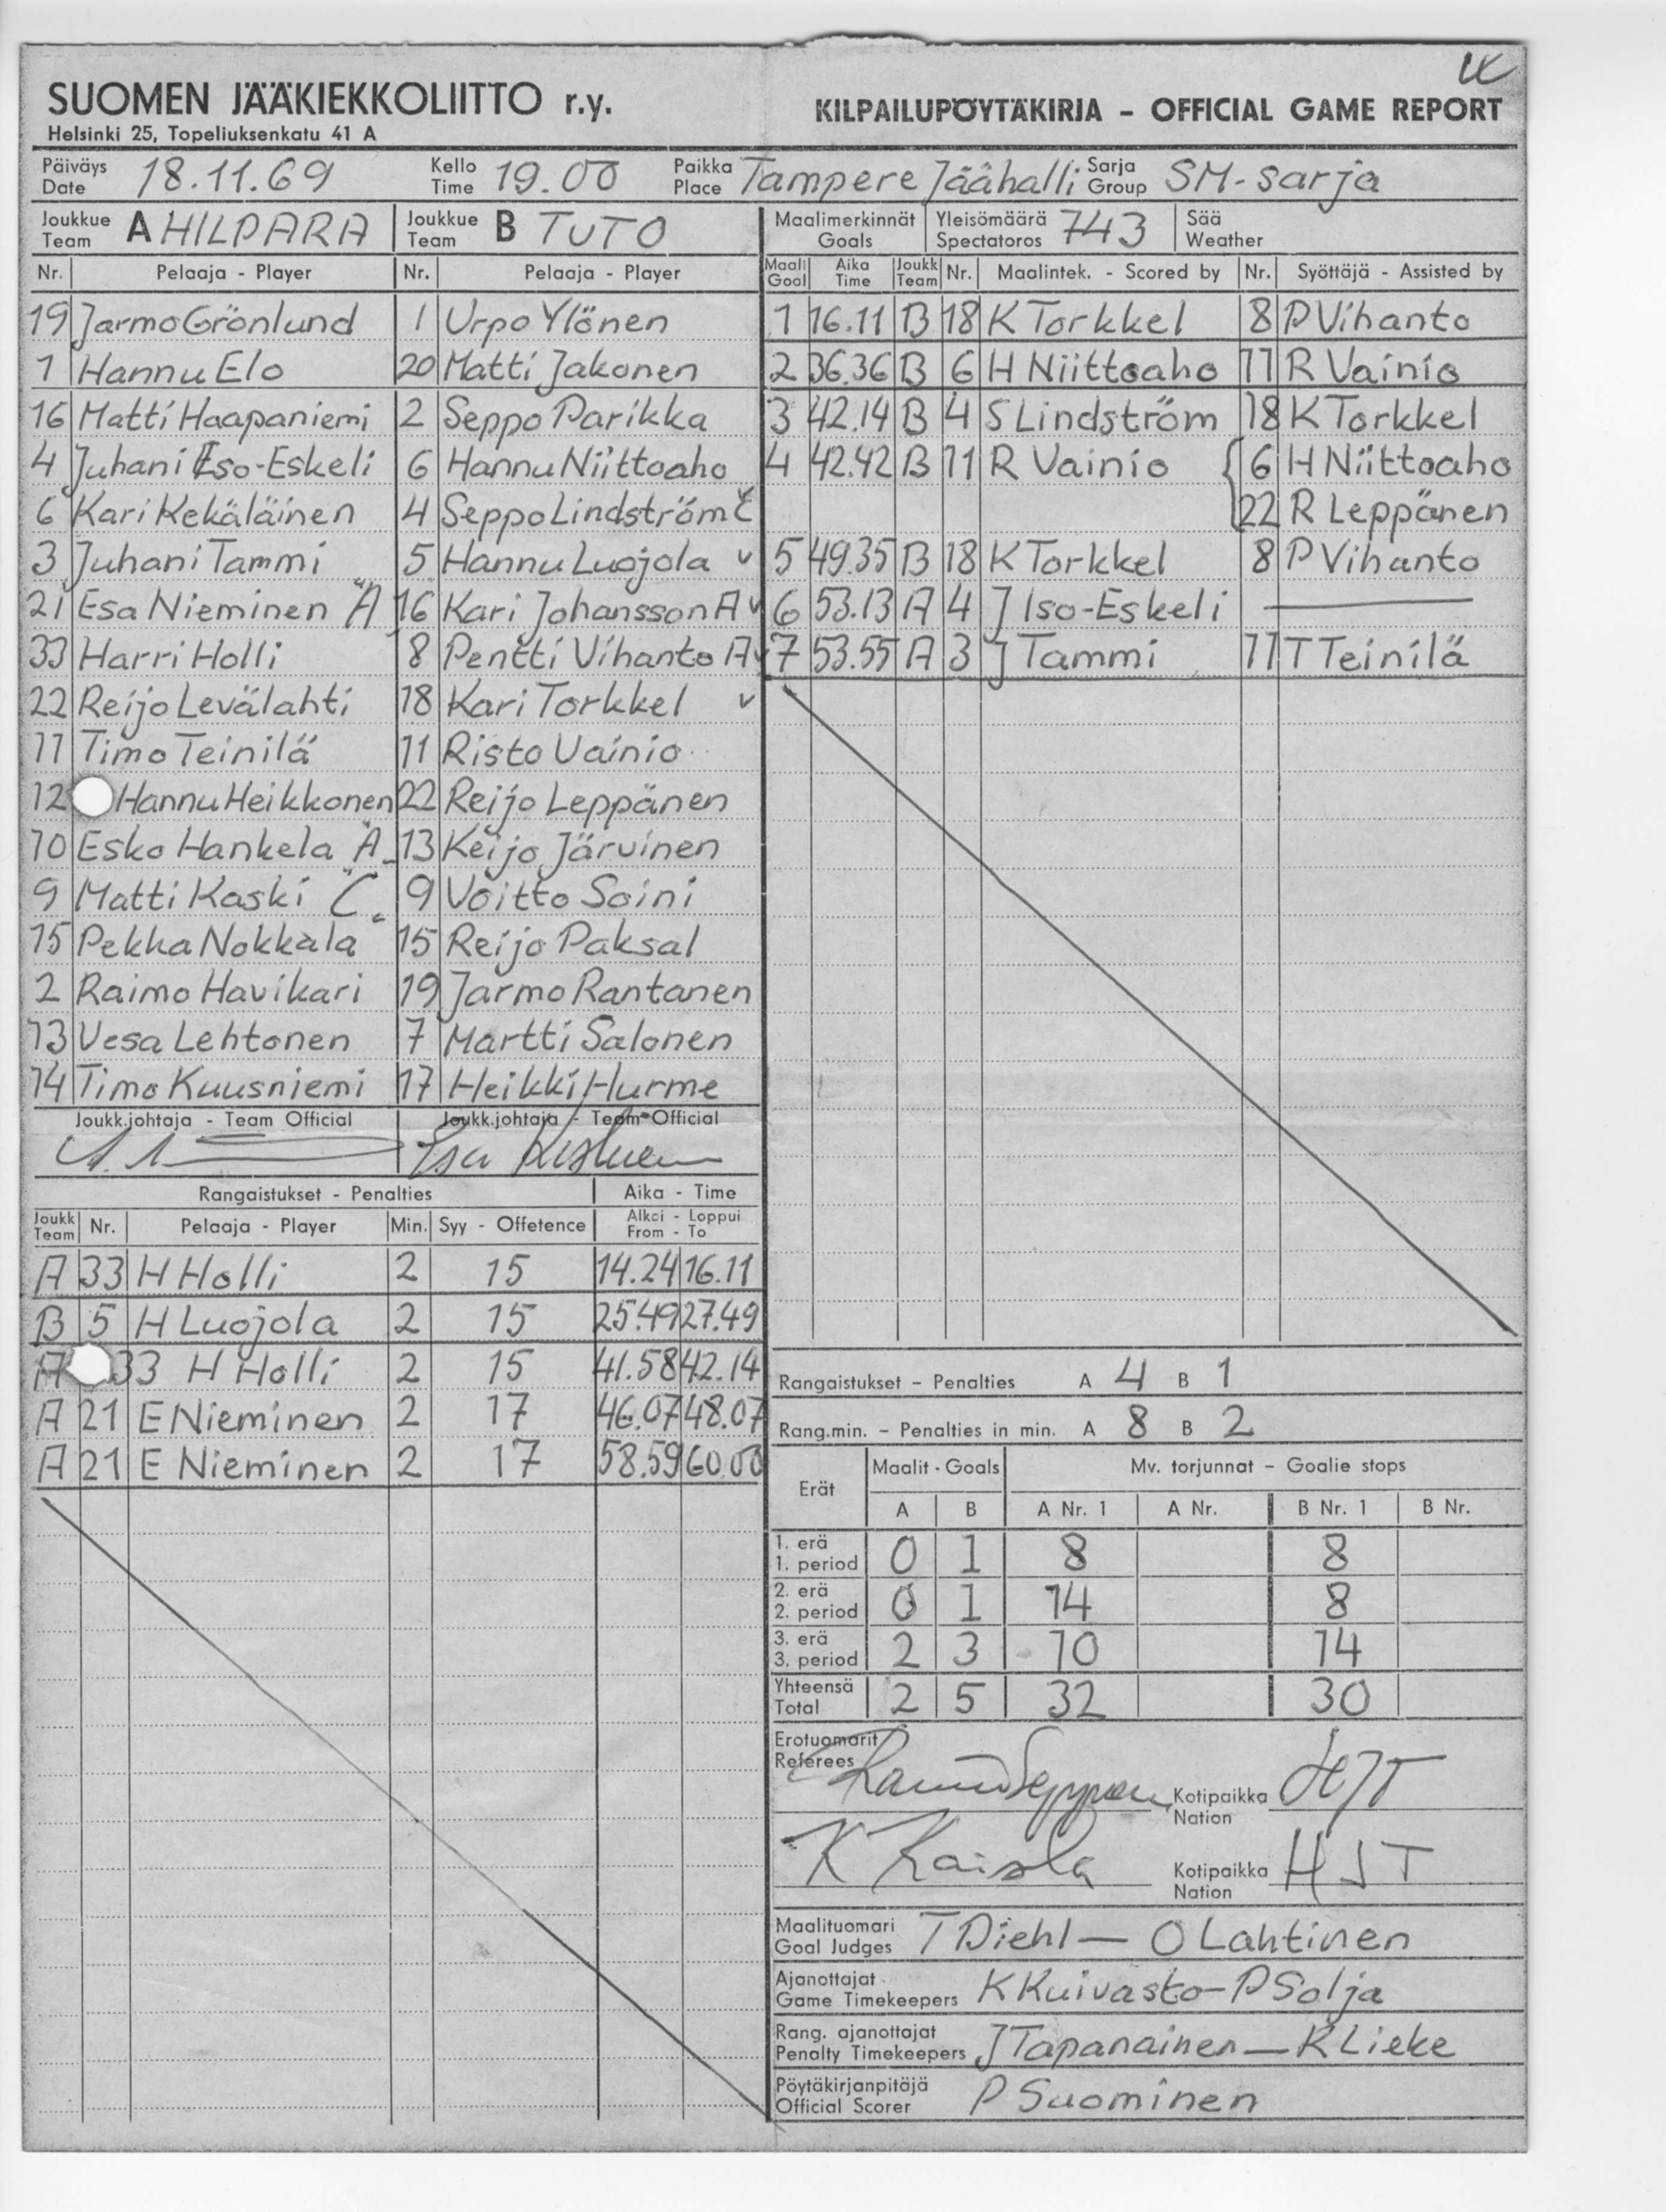 SUOMEN JÄÄKIEKKOLIITTO r.y.
Helsinki 25, Topeliuksenkatu 41 A
KILPAILUPÖYTÄKIRJA – OFFICIAL GAME REPORT
Päiväys Date 18.11.69 Kello Time 19.00 Paikka Place Tampere Jäähalli Sarja Group SM-sarja
Joukkue Team A HILPARA Joukkue Team B TUTO
Nr. Pelaaja - Player Nr. Pelaaja - Player
19 Jarmo Grönlund 1 Urpo Ylönen
1 Hannu Elo 20 Matti Jakonen
16 Matti Haapaniemi 2 Seppo Parikka
4 Juhani Iso-Eskeli 6 Hannu Niittoaho
6 Kari Kekäläinen 4 Seppo Lindström C
3 Juhani Tammi 5 Hannu Luojola v
21 Esa Nieminen "A 16 Kari Johansson A v
33 Harri Holli 8 Pentti Vihanto A v
22 Reijo Levälahti 18 Kari Torkkel v
11 Timo Teinilä 11 Risto Vainio
12 Hannu Heikkonen 22 Reijo Leppänen
10 Esko Hankela "A 13 Keijo Järvinen
9 Matti Kaski "C 9 Voitto Soini
15 Pekka Nokkala 15 Reijo Paksal
2 Raimo Havikari 19 Jarmo Rantanen
13 Vesa Lehtonen 7 Martti Salonen
14 Timo Kuusniemi 17 Heikki Hurme
Joukk.johtaja - Team Official Joukk.johtaja - Team Official
Rangaistukset - Penalties Aika - Time
Joukk Team Nr. Pelaaja - Player Min. Syy - Offetence Alkci - Loppui From - To
A 33 H Holli 2 15 14.24 16.11
B 5 H Luojola 2 15 25.49 27.49
A 33 H Holli 2 15 41.58 42.14
A 21 E Nieminen 2 17 46.07 48.07
A 21 E Nieminen 2 17 58.59 60.00
Maalimerkinnät Goals Yleisömäärä Spectatoros 743 Sää Weather
Maali Goal Aika Time Joukk Team Nr. Maalintek. - Scored by Nr. Syöttäjä - Assisted by
1 16.11 B 18 K Torkkel 8 P Vihanto
2 36.36 B 6 H Niittoaho 11 R Vainio
3 42.14 B 4 S Lindström 18 K Torkkel
4 42.42 B 11 R Vainio 6 H Niittoaho
22 R Leppänen
5 49.35 B 18 K Torkkel 8 P Vihanto
6 53.13 A 4 J Iso-Eskeli
7 53.55 A 3 J Tammi 11 T Teinilä
Rangaistukset – Penalties A 4 B 1
Rang.min. – Penalties in min. A 8 B 2
Erät Maalit - Goals Mv. torjunnat – Goalie stops
A B A Nr. 1 A Nr. B Nr. 1 B Nr.
1. erä 1. period 0 1 8 8
2. erä 2. period 0 1 14 8
3. erä 3. period 2 3 10 14
Yhteensä Total 2 5 32 30
Erotuomarit Referees Kotipaikka Nation HJT
K Kaisla Kotipaikka Nation HJT
Maalituomari Goal Judges T Diehl — O Lahtinen
Ajanottajat Game Timekeepers K Kuivasto – P Solja
Rang. ajanottajat Penalty Timekeepers J Tapanainen — R Lieke
Pöytäkirjanpitäjä Official Scorer P Suominen